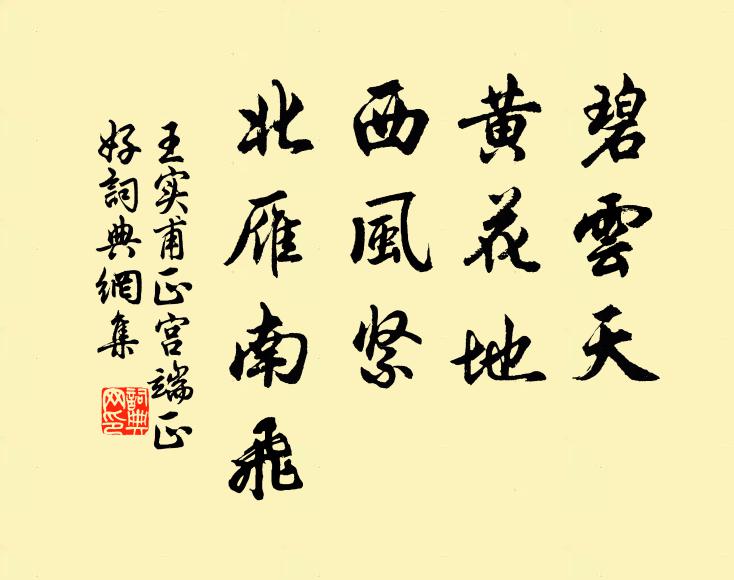 碧雲天
黄花地
西風緊
北雁南飛
王实甫正宫端正
好詞典網集
詞典網印